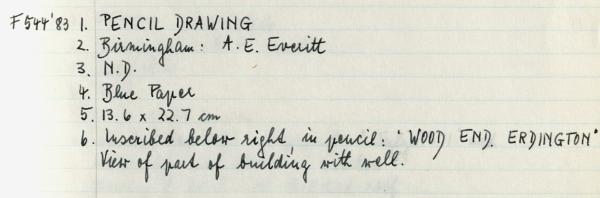 F544'83 1. PENCIL DRAWING
2. Birmingham: A. E. Everitt
3. N.D.
4. Blue Paper
5. 13.6 x 22.7 cm
6. Inscribed below right, in pencil: 'WOOD END. ERDINGTON'
View of part of building with well.